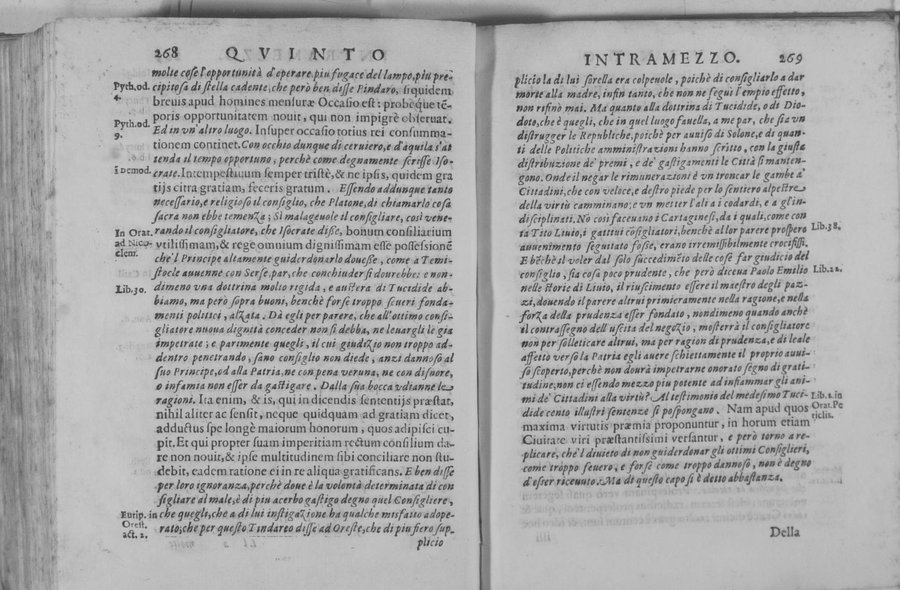 268 QVINTO
molte cose l'opportunità d'operare, piu fugace del lampo, piu pre-
Pyth. od. 4.
cipitosa di stella cadente, che però ben disse Pindaro, siquidem
breuis apud homines mensuræ Occasio est: probèque tẽ-
poris opportunitatem nouit, qui non impigrè obseruat.
Pyth. od. 9.
Ed in vn'altro luogo. Insuper occasio totius rei consumma-
tionem continet. Con occhio dunque di ceruiero, e d'aquila s'at
tenda il tempo opportuno, perchè come degnamente scrisse Iso-
ĩ Demod.
crate. Intempestiuum semper tristè, & ne ipsis, quidem gra
tijs citra gratiam, feceris gratum. Essendo addunque tanto
necessario, e religioso il consiglio, che Platone, di chiamarlo cosa
sacra non ebbe temenza; Sì malageuole il consigliare, così vene-
In Orat. ad Nicoclem.
rando il consigliatore, che Isocrate disse, bonum consiliarium
vtilissimam, & rege omnium dignissimam esse possessionẽ
che'l Principe altamente guiderdonarlo douesse, come a Temi-
stocle auuenne con Serse, par, che conchiuder si dourebbe: e non-
Lib. 30.
dimeno vna dottrina molto rigida, e austera di Tucidide ab-
biamo, ma però sopra buoni, benchè forse troppo seueri fonda-
menti politici, alzata. Dà egli per parere, che all'ottimo consi-
gliatore nuoua dignità conceder non si debba, ne leuargli le già
impetrate; e parimente quegli, il cui giudizio non troppo ad-
dentro penetrando, sano consiglio non diede, anzi dannoso al
suo Principe, od alla Patria, ne con pena veruna, ne con disnore,
o infamia non esser da gastigare. Dalla sua bocca vdianne le
ragioni. Ita enim, & is, qui in dicendis sententijs præstat,
nihil aliter ac sensit, neque quidquam ad gratiam dicet,
adductus spe longè maiorum honorum, quos adipisci cu-
pit. Et qui propter suam imperitiam rectum consilium da-
re non nouit, & ipse multitudinem sibi conciliare non stu-
debit, eadem ratione ei in re aliqua gratificans. E ben disse
per loro ignoranza, perchè doue è la volontà determinata di con
sigliare al male, è di piu acerbo gastigo degno quel Consigliere,
Eurip. in Orest. act. 2.
che quegli, che a di lui instigazione ha qualche misfatto adope-
rato, che per questo Tindareo disse ad Oreste, che di piu fiero sup-
plicio
INTRAMEZZO. 269
plicio la di lui sorella era colpeuole, poichè di consigliarlo a dar
morte alla madre, infin tanto, che non ne seguì l'empio effetto,
non rifinò mai. Ma quanto alla dottrina di Tucidide, o di Dio-
doto, che è quegli, che in quel luogo fauella, a me par, che sia vn
distrugger le Republiche, poichè per auuiso di Solone, e di quan-
ti delle Politiche amministrazioni hanno scritto, con la giusta
distribuzione de' premi, e de' gastigamenti le Città si manten-
gono. Onde il negar le rimunerazioni è vn troncar le gambe a'
Cittadini, che con veloce, e destro piede per lo sentiero alpestre
della virtù camminano; e vn metter l'ali a i codardi, e a gl'in-
disciplinati. Nò così faceuano i Cartaginesi, da i quali, come con
Lib. 38.
ta Tito Liuio, i gattiui cõsigliatori, benchè al lor parere prospero
auuenimento seguitato fosse, erano irremissibilmente crocifissi.
E bẽchè il voler dal solo succedimẽto delle cose far giudicio del
Lib. 22.
consiglio, sia cosa poco prudente, che però diceua Paolo Emilio
nelle storie di Liuio, il riuscimento essere il maestro degli paz-
zi, douendo il parere altrui primieramente nella ragione, e nella
forza della prudenza esser fondato, nondimeno quando anchè
il contrassegno dell'uscita del negozio, mosterrà il consigliatore
non per solleticare altrui, ma per ragion di prudenza, e di leale
affetto verso la Patria egli auere schiettamente il proprio auui-
so scoperto, perchè non dourà impetrarne onorato segno di grati-
tudine, non ci essendo mezzo piu potente ad infiammar gli ani-
mi de' Cittadini alla virtù? Al testimonio del medesimo Tuci-
Lib. 2. in Orat. Periclis.
dide cento illustri sentenze si pospongano. Nam apud quos
maxima virtutis præmia proponuntur, in horum etiam
Ciuitate viri præstantissimi versantur, e però torno a re-
plicare, che'l diuieto di non guiderdonar gli ottimi Consiglieri,
come troppo seuero, e forse come troppo dannoso, non è degno
d'esser riceuuto. Ma di questo capo si è detto abbastanza.
Della